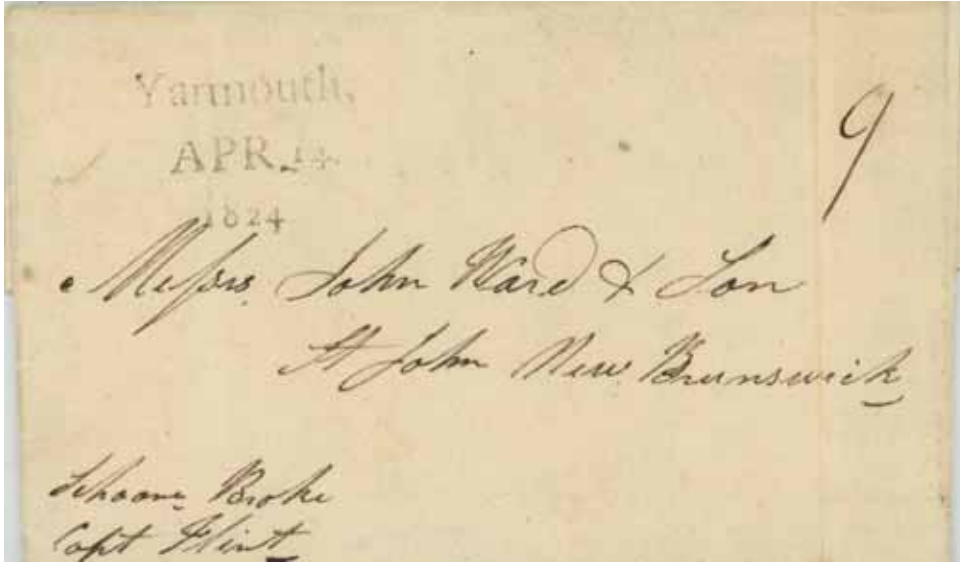 Yarmouth,
APR. 14.
1824
9
Messrs. John Ward & Son
St John New Brunswick
Schoonr Broke
Capt Flint